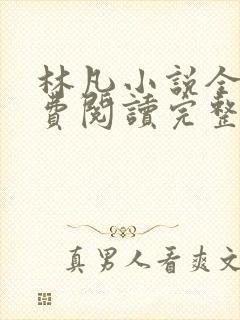 林凡小説全
費閱讀完整
真男人看爽文